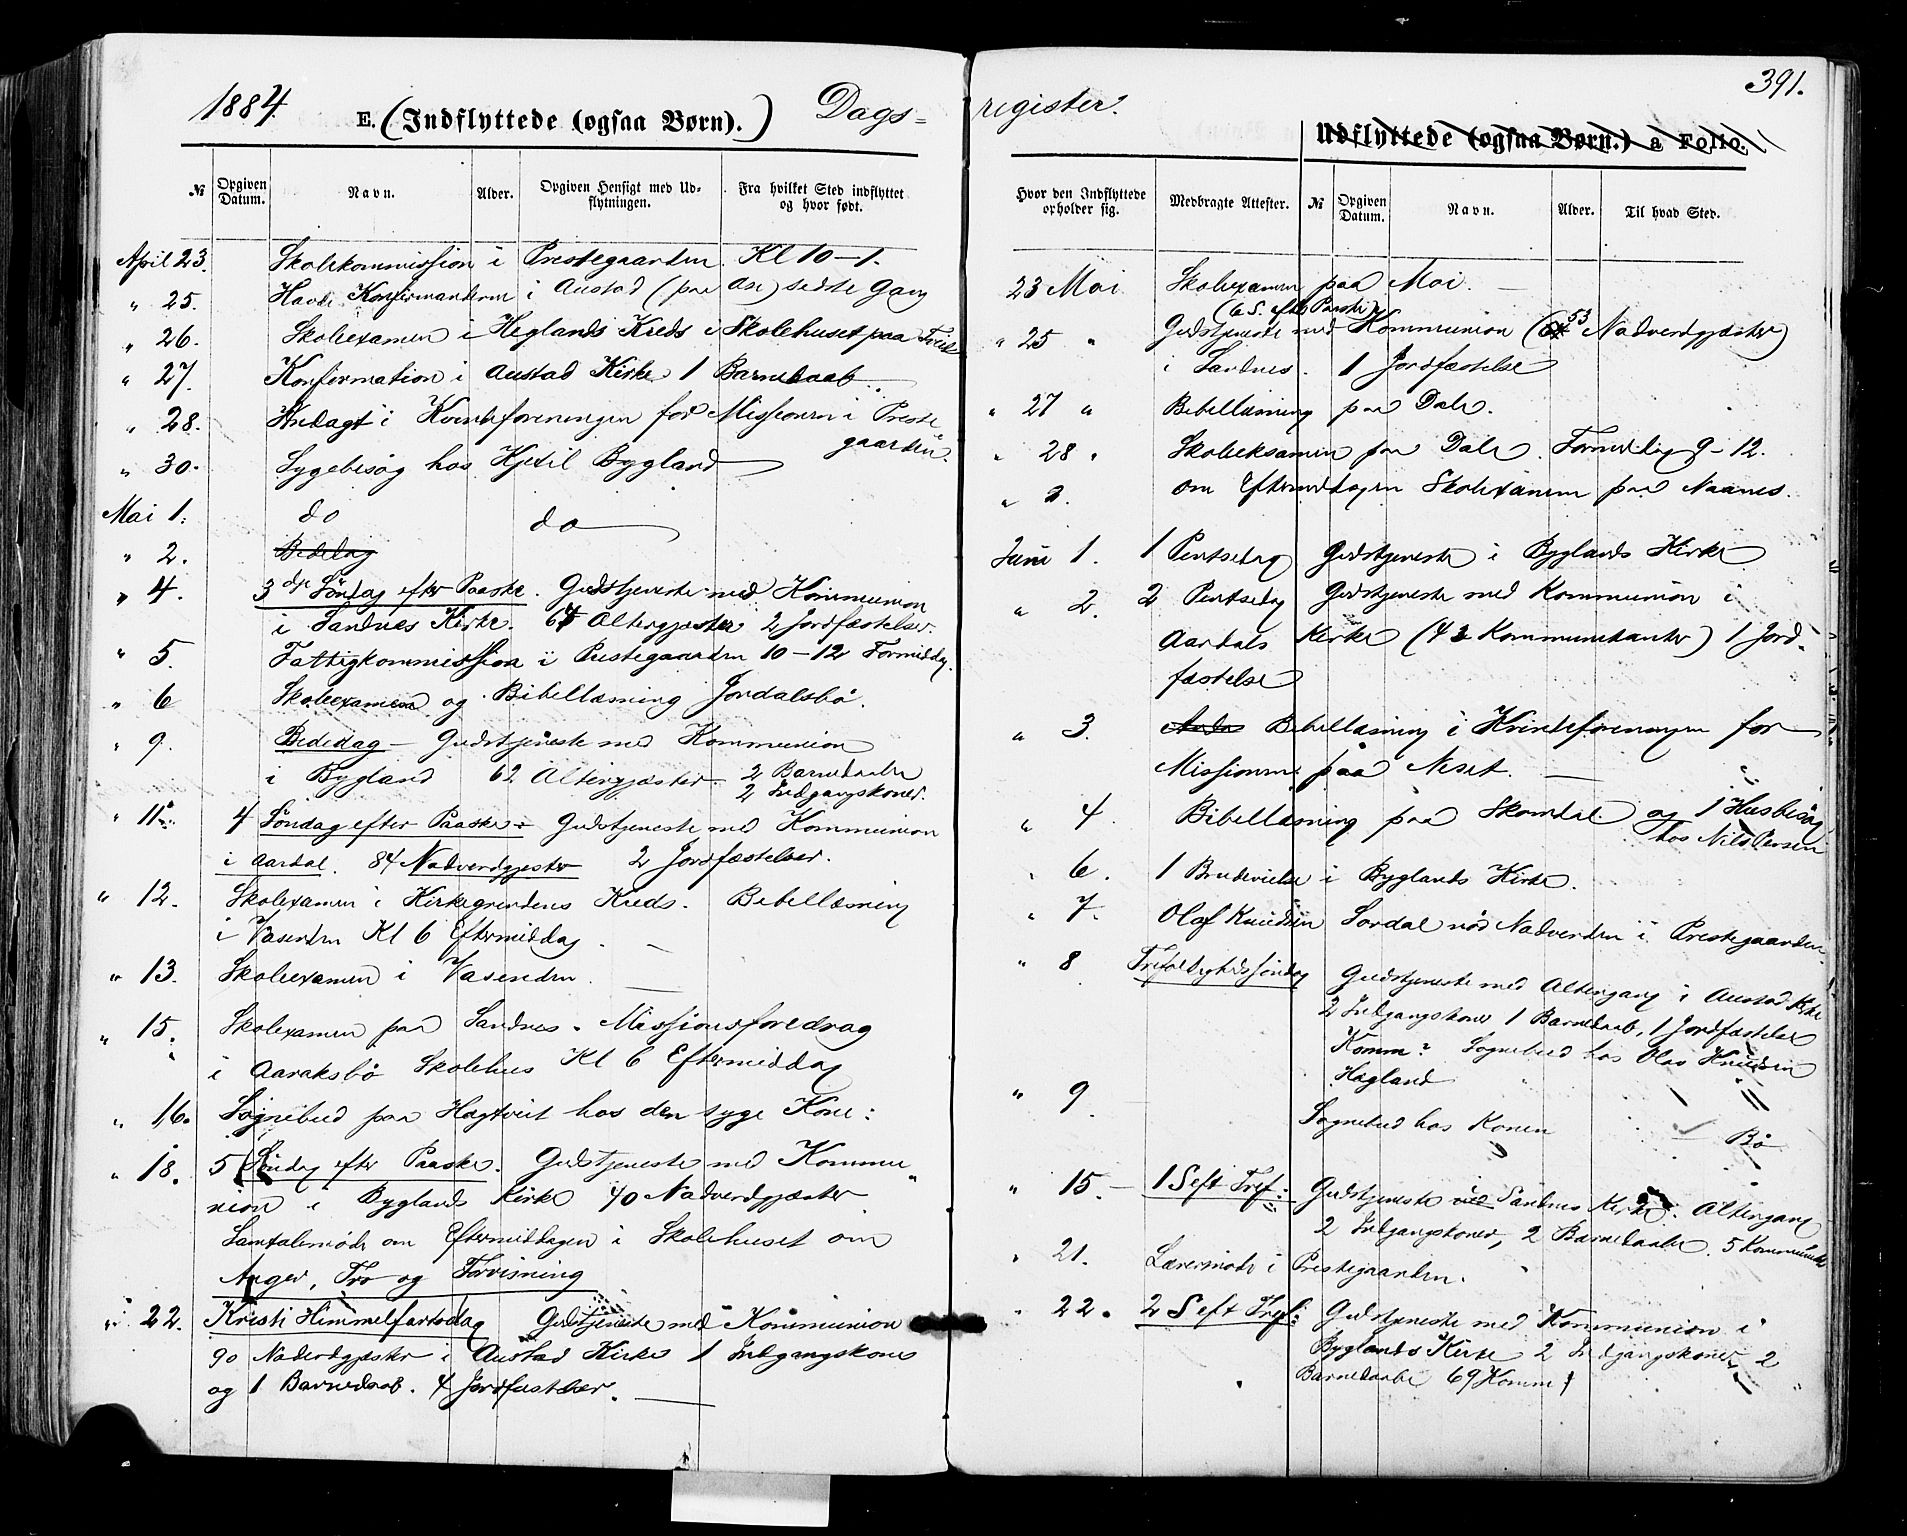 1884. E. (Indflyttede (ogsaa Børn).) Dags-
№ Opgiven Datum. Navn. Alder. Opgiven Hensigt med Udflytningen. Fra hvilket Sted indflyttet og hvor født.
April 23. Skolekommission i Prestegaarden Kl 10–1.
" 25. Havde Konfirmanterne i Austad (paa Ose) sidste Gang
" 26. Skoleexamen i Heglands Kreds i Skolehuset paa
" 27. Konfirmation i Austad Kirke 1 Barnedaab.
" 28. Andagt i Kvindeforeningen for Missionen i Preste
gaarden.
" 30. Sygebesøg hos Kjetil Bygland
Mai 1. do do
" 2. Bededag
" 4. 3die Söndag efter Paaske. Gudstjeneste med Kommunion
i Sandnes Kirke. 64 Altergjester 2 Jordfæstelser.
" 5. Fattigkommission i Prestegaarden 10–12 Formiddag.
" 6 Skoleexamen og Bibellæsning Jordalsbö.
" 9. Bededag – Gudstjeneste med Kommunion
i Bygland 62 Altergjester 2 Barnedaabe
2 Indgangskoner.
" 11. 4 Söndag efter Paaske – Gudstjeneste med Kommunion
i Aardal. 84 Nadverdgjester 2 Jordfæstelser.
" 12. Skolexamen i Kirkegrendens Kreds. Bibellæsning
i Vasenden Kl 6 Eftermiddag.
" 13. Skoleexamen i Vasenden.
" 15. Skolexamen paa Sandnes. Missionsforedrag
i Aaraksbö Skolehus Kl 6 Eftermiddag
" 16. Sognebud paa Hagtveit hos den syge Kone:
" 18. 5 Söndag efter Paaske. Gudstjeneste med Kommu-
nion i Byglands Kirke 40 Nadverdgjæster
Samtalemøde om Eftermiddagen i Skolehuset om
Anger, Tro og Forvisning
" 22. Kristi Himmelfartsdag Gudstjeneste med Kommunion
90 Naderdgjæster i Austad Kirke 1 Indgangskone
og 1 Barnedaab. 4 Jordfæstelser.
register. 391.
Udflyttede (ogsaa Børn.) a Folio.
Hvor den Indflyttede opholder sig. Medbragte Attester. № Opgiven Datum. Navn. Alder. Til hvad Sted.
23 Mai Skolexamen paa Moi.
(6 S. eft Paaske)
" 25 " Gudstjeneste med Kommunion (53 Nadverdgjæster)
i Sandnes. 1 Jordfæstelse
" 27 " Bibellæsning paa Dale.
" 28 " Skoleeksamen paa Dale Formiddag 9–12.
om Eftermiddagen Skolexamen paa Naanes.
Juni 1. 1 Pintsedag Gudstjeneste i Byglands Kirke
" 2. 2 Pintsedag Gudstjeneste med Kommunion i
Aardals Kirke (42 Kommunikanter) 1 Jord-
fæstelse
" 3. Bibellæsning i Kvindeforeningen for
Missionen paa Neset.
" 4. Bibellæsning paa Skomdal og 1 Husbesög
hos Nils Persen
" 6. 1 Brudevielse i Byglands Kirke.
" 7. Olaf Knudsen Sordal nöd Nadverden i Prestegaarden
" 8 Trefoldighedssöndag Gudstjeneste med Altergang i Austad Kirke
2 Indgangskoner 1 Barnedaab, 1 Jordfæstelse
Komm? Sognebud hos Olav Knudsen
Hagland
" 9. Sognebud hos Konen Bö
" 15. 1 S eft Tref: Gudstjeneste Sandnes Kirke. Altergang
2 Indgangskoner, 2 Barnedaabe. 5
" 21. Lærermöde i Prestegaarden.
" 22. 2 S eft Tref: Gudstjeneste med Kommunion i
Byglands Kirke 2 Indgangskoner, 2
Barnedaabe 69 Komm